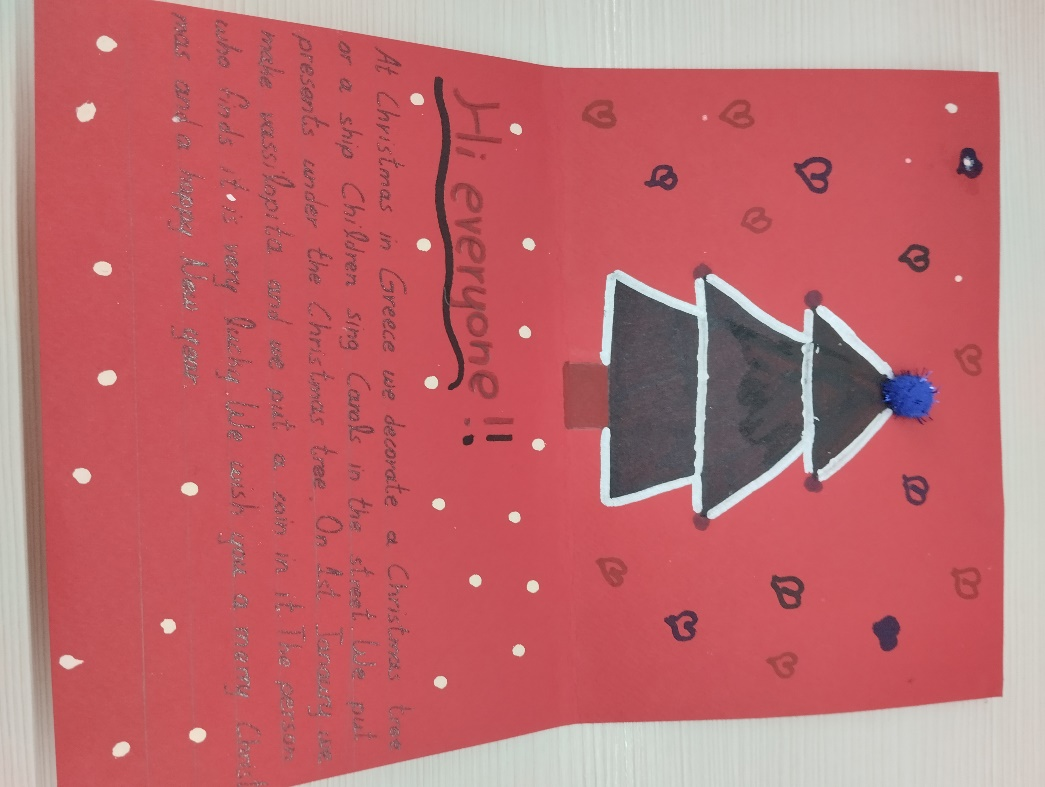 Hi everyone!!
At Christmas in Greece we decorate a Christmas tree
or a ship Children sing Carols in the street. We put
presents under the Christmas tree. On 1st Janaury we
make vassilopita and we put a coin in it. The person
who finds it is very lucky. We wish you a merry Christ
mas and a happy New year.